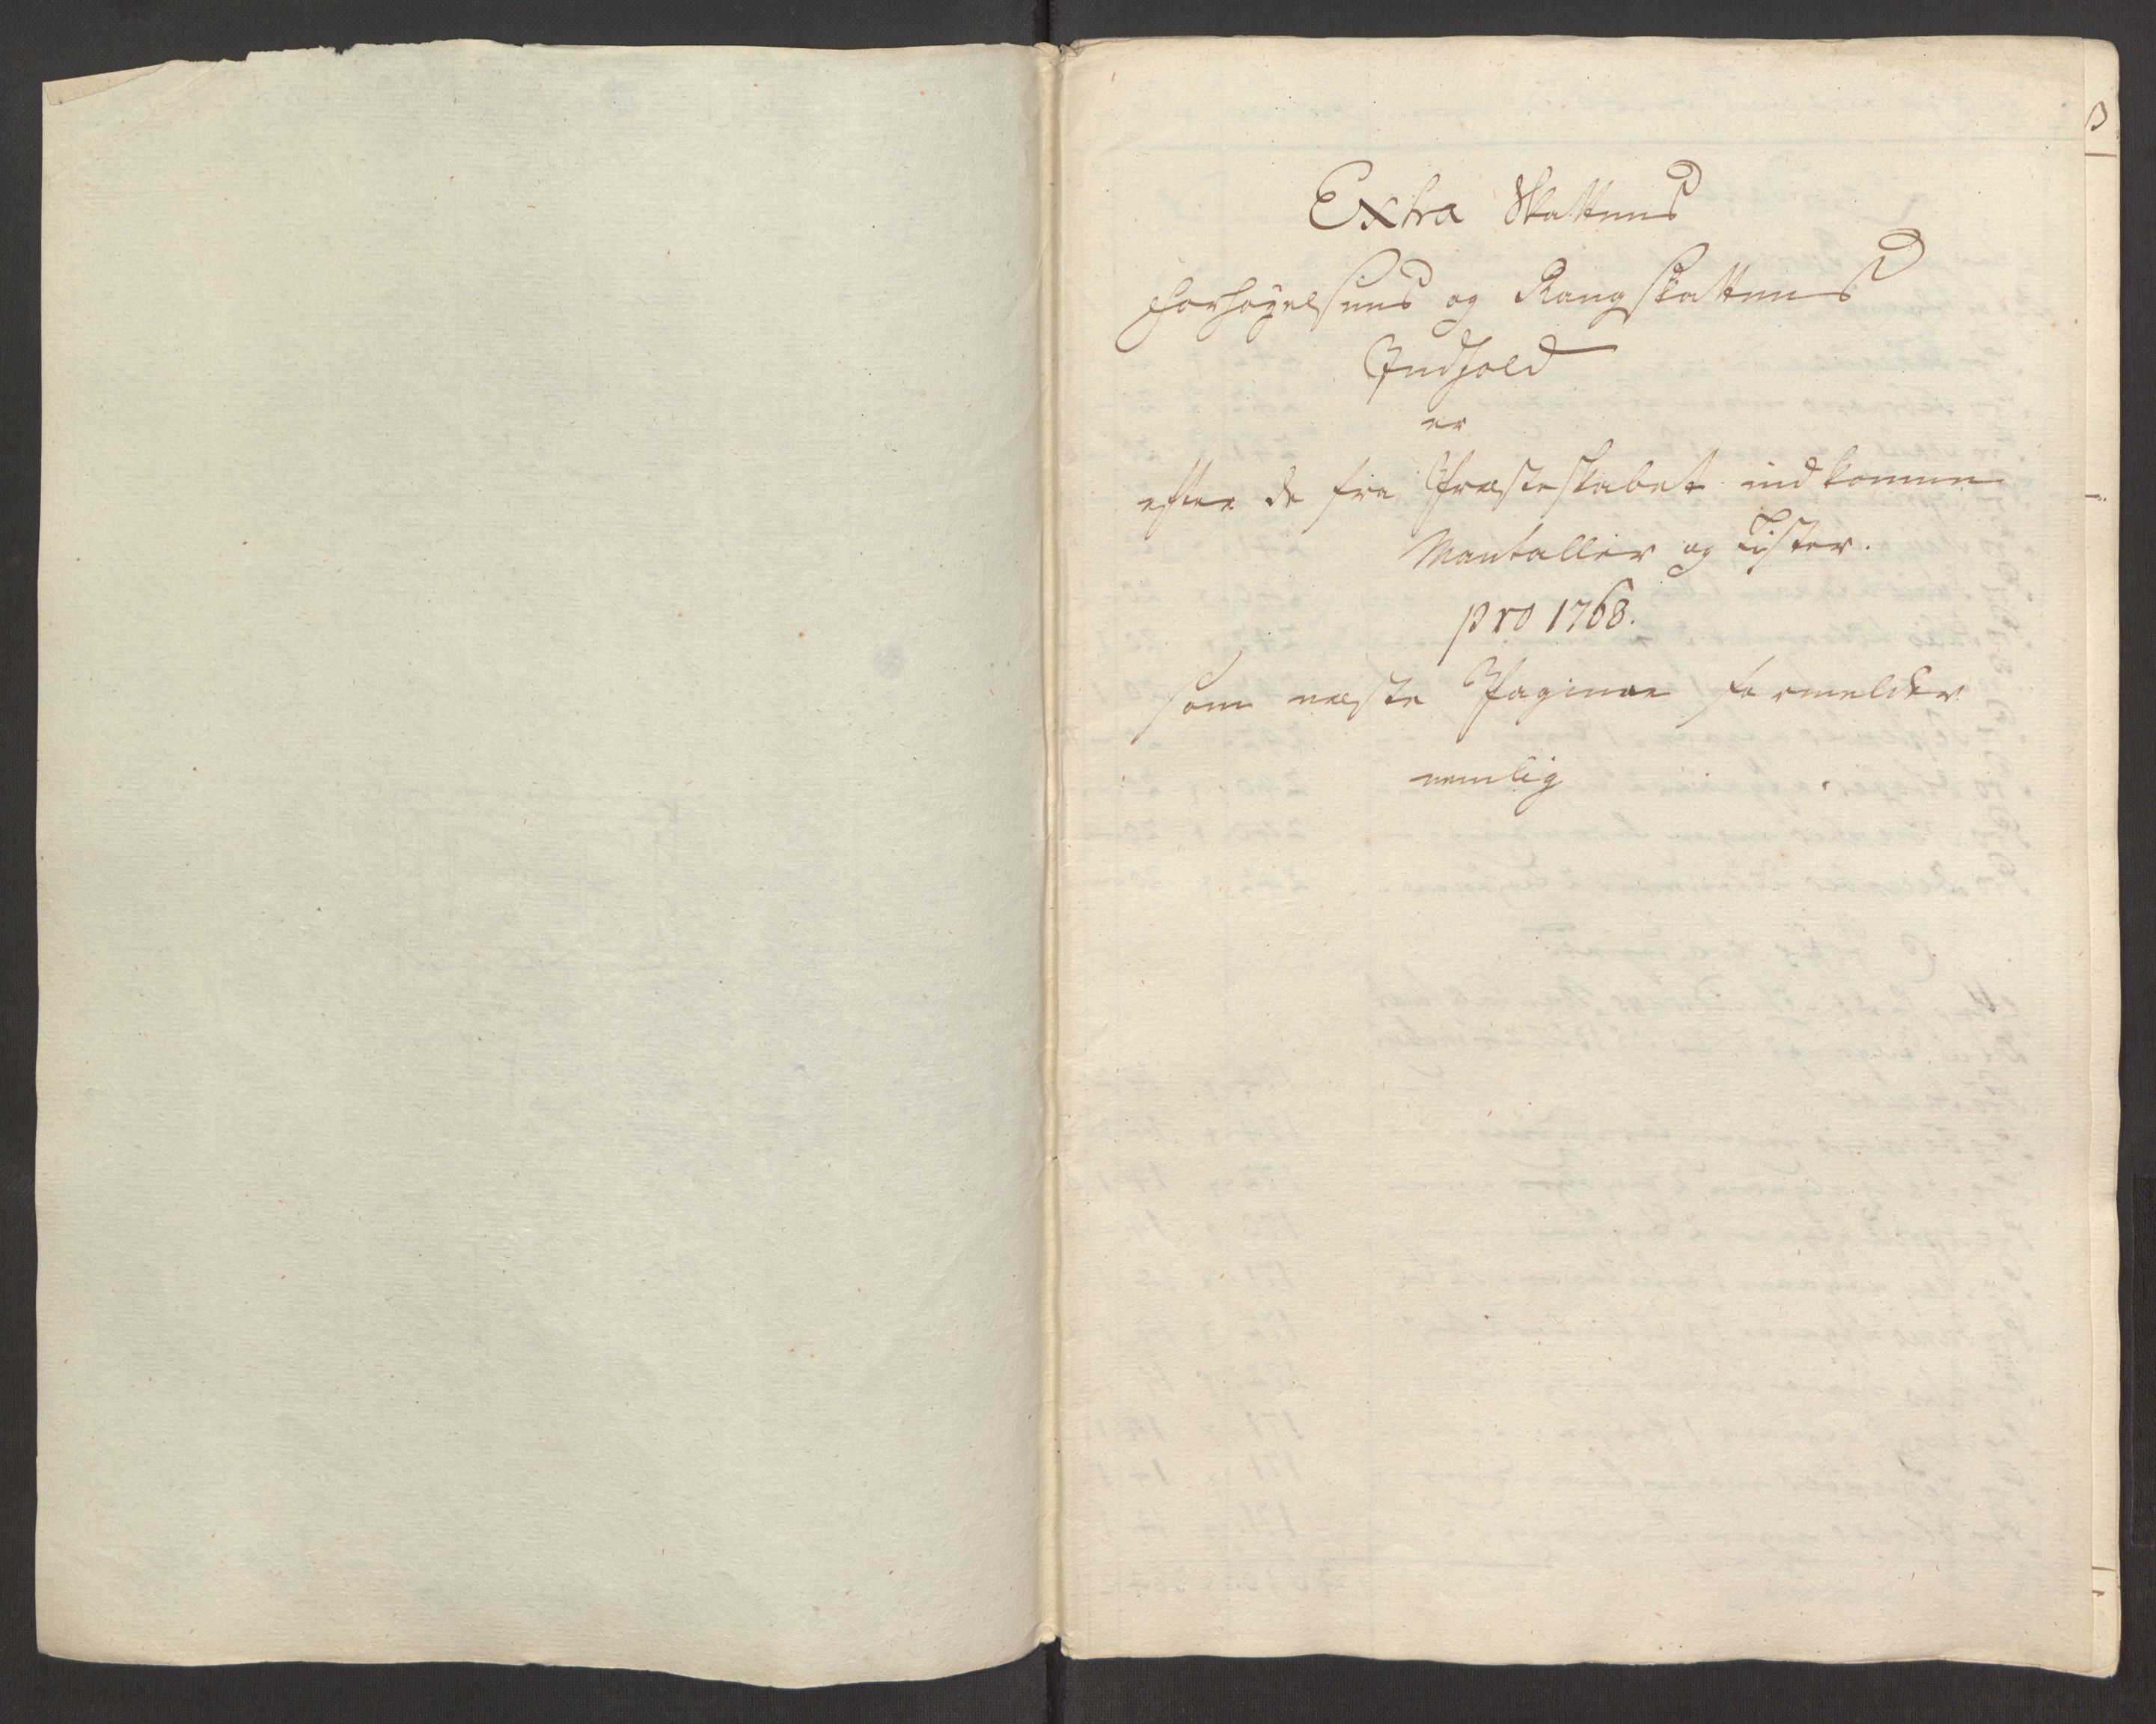 Extra Skattens
Forhøyelsens og Rang Skattens
Indhold
er
efter de fra Præsteskabet indkomne
Mantaller og Lister.
pro 1768.
som næste Paginæ formelder
nemlig